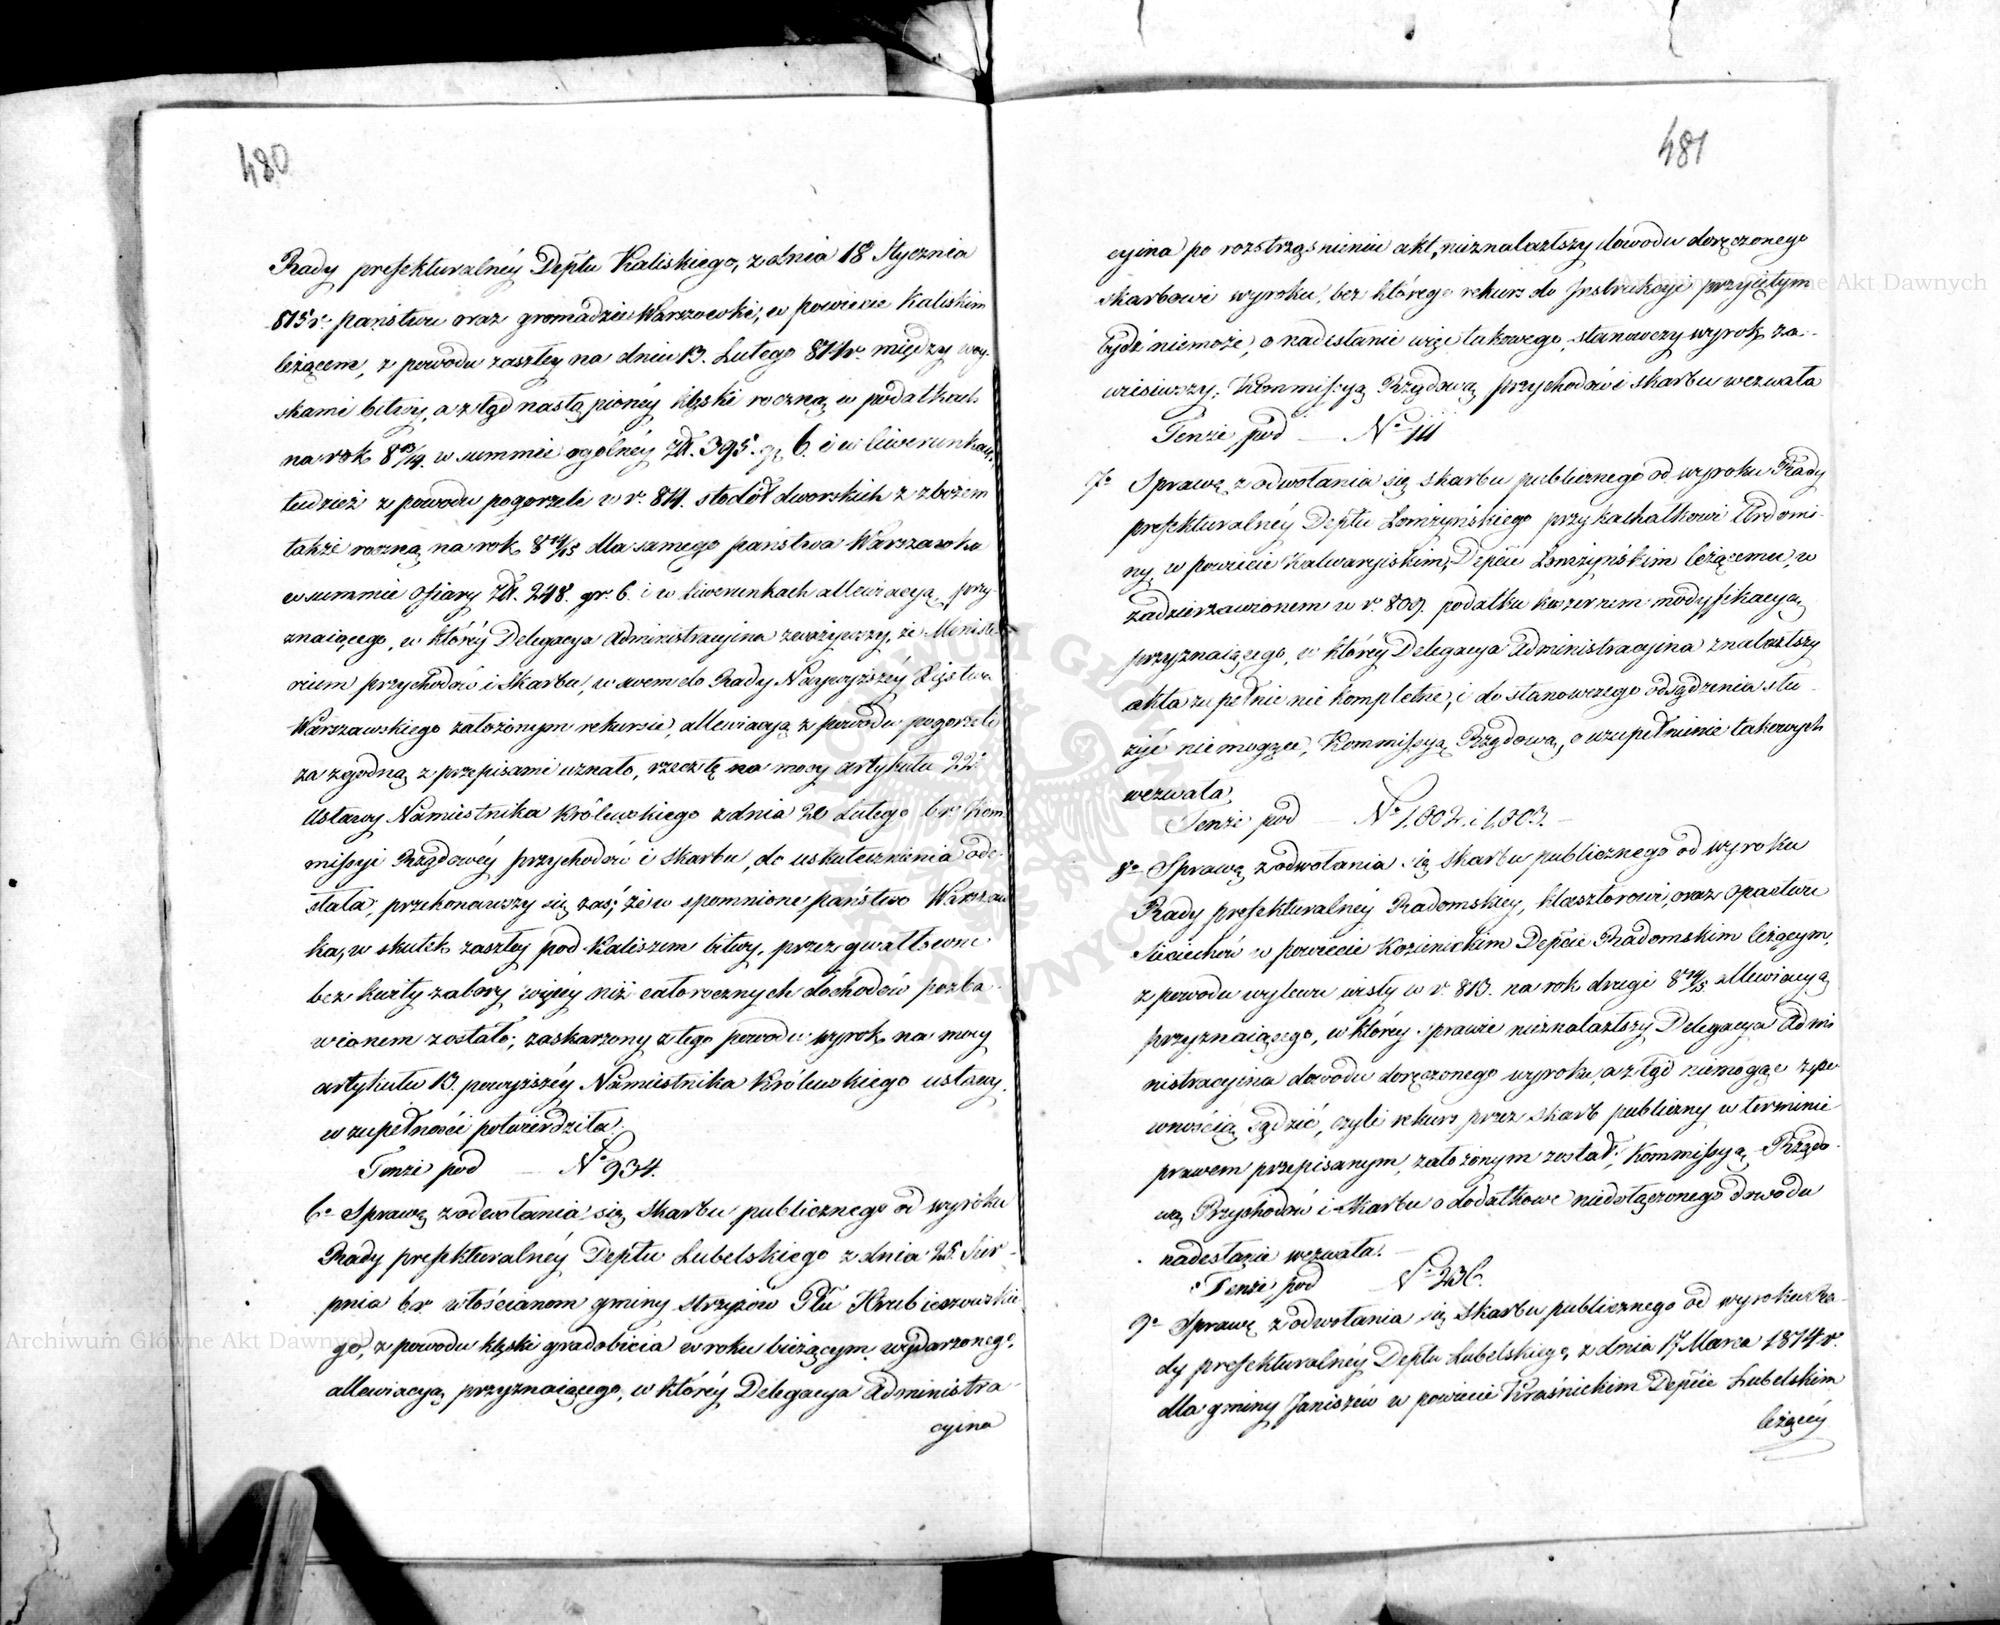 480
Rady prefekturalnéy Deptu Kaliskiego, z dnia 18 Stycznia
815 r. państwu oraz gromadzie Warszowki, w powiecie Kaliskim
leżącem, z powodu zaszłey na dniu 13. Lutego 814 r. między woy-
skami bitwy, a ztąd nastąpionéy klęski roczną w podatkach
na rok 8 13/14. w summie ogólnéy Zł. 395. gr. 6. i w liwerunkach,
tudzież z powodu pogorzeli w r. 814. stodół dworskich z zbożem
także roczną na rok 8 14/15 dla samego państwa Warszawka
w summie ofiary Zł. 248. gr. 6. i w liwerunkach allewiacyą przy-
znaiącego, w któréy Delegacya Administracyina zważywszy, że Ministe-
rium przychodów i Skarbu, w swem do Rady Naywyższéy Xięstwa
Warszawskiego założonym rekursie, allewiacyą z powodu pogorzeli
za zgodną z przepisami uznało, rzecz tę na mocy artykułu 22
Ustawy Namiestnika Królewskiego z dnia 20 Lutego b. r. Kom-
missyi Rządowéy przychodów i Skarbu, do uskutecznienia ode-
słała, przekonawszy się zaś, że w spomnione państwo Warszaw-
ka, w skutek zaszłey pod Kaliszem bitwy, przez gwałtowne
bez kwity zabory, więcéy niż całorocznych dochodów pozba-
wionem zostało; zaskarżony z tego powodu wyrok, na mocy
artykułu 13. powyższéy Namiestnika Królewskiego ustawy,
w zupełności potwierdziła.
Tenże pod — No 934.
6o Sprawę z odwołania się Skarbu publicznego od wyroku
Rady prefekturalnéy Deptu Lubelskiego z dnia 25. Sier-
pnia b. r. włościanom gminy Strzyżów Ptu Hrubieszowskie-
go, z powodu klęski gradobicia w roku bieżącym wydarzonego,
allewiacyą przyznaiącego, w któréy Delegacya Administra-
cyina
481
cyina po rozstrząśnieniu akt, nieznalazłszy dowodu doręczonego
skarbowi wyroku, bez którego rekurs do Instrukcyi przyiętym
bydź niemoże, o nadesłanie więc takowego, stanowczy wyrok za-
wiesiwszy, Kommissyą Rządową przychodów i skarbu wezwała
Tenże pod — No 111
7o Sprawę z odwołania się skarbu publicznego od wyroku Rady
prefekturalnéy Deptu Łomżyńskiego przy kahałkowi Urdomi-
ny, w powiecie Kalwaryiskim, Depcie Łomżyńskim leżącemu, w
zadzierżawionem w r. 809. podatku koszernem modyfikacyą
przyznaiącego, w któréy Delegacya Administracyina znalazłszy
akta zupełnie nie kompletne, i do stanowczego osądzenia słu-
żyć niemogące, Kommissyą Rządową, o uzupełnienie takowych
wezwała,
Tenże pod — No 1,002. i 1,003. —
8o Sprawę z odwołania się skarbu publicznego od wyroku
Rady prefekturalnéy Radomskiey, klasztorowi, oraz opactwu
Sieciechów w powiecie Kozienickim Depcie Radomskim leżącym,
z powodu wylewu wisły w r. 813. na rok drugi 8 14/15 allewiacyą
przyznaiącego, w któréy sprawie nieznalazłszy Delegacya Admi-
nistracyina dowodu doręczonego wyroku, a ztąd niemogąc z pe-
wnością sądzić, czyli rekurs, przez skarb publiczny w terminie
prawem przepisanym, założonym został, Kommissyą Rządo-
wą Przychodów i Skarbu o dodatkowe niedołączonego dowodu
nadesłanie wezwała. —
Tenże pod No 236.
9o Sprawę z odwołania się Skarbu publicznego od wyroku Ra-
dy prefekturalnéy Deptu Lubelskiego, z dnia 17 Marca 1814 r.
dla gminy Janiszów w powiecie Kraśnickim Depcie Lubelskim
leżącéy
Archiwum Główne Akt Dawnych
Archiwum Główne Akt Dawnych